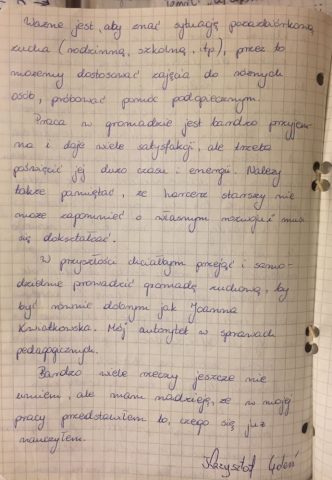 Ważne jest, aby znać sytuację pozazbiórkową
zucha (rodzinną, szkolną, itp), przez to
możemy dostosować zajęcia do różnych
osób, próbować pomóc podopiecznym.
Praca w gromadzie jest bardzo przyjem-
na i daje wiele satysfakcji, ale trzeba
poświęcić jej dużo czasu i energii. Należy
także pamiętać, że harcerz starszy nie
może zapomnieć o własnym rozwoju i musi
się dokształcać.
W przyszłości chciałbym przejąć i samo-
dzielnie prowadzić gromadę zuchową, by
być równie dobrym jak Joanna
Kwiatkowska. Mój autorytet w sprawach
pedagogicznych.
Bardzo wiele rzeczy jeszcze nie
umiem, ale mam nadzieję, że w mojej
pracy przedstawiłem to, czego się już
nauczyłem.
Krzysztof